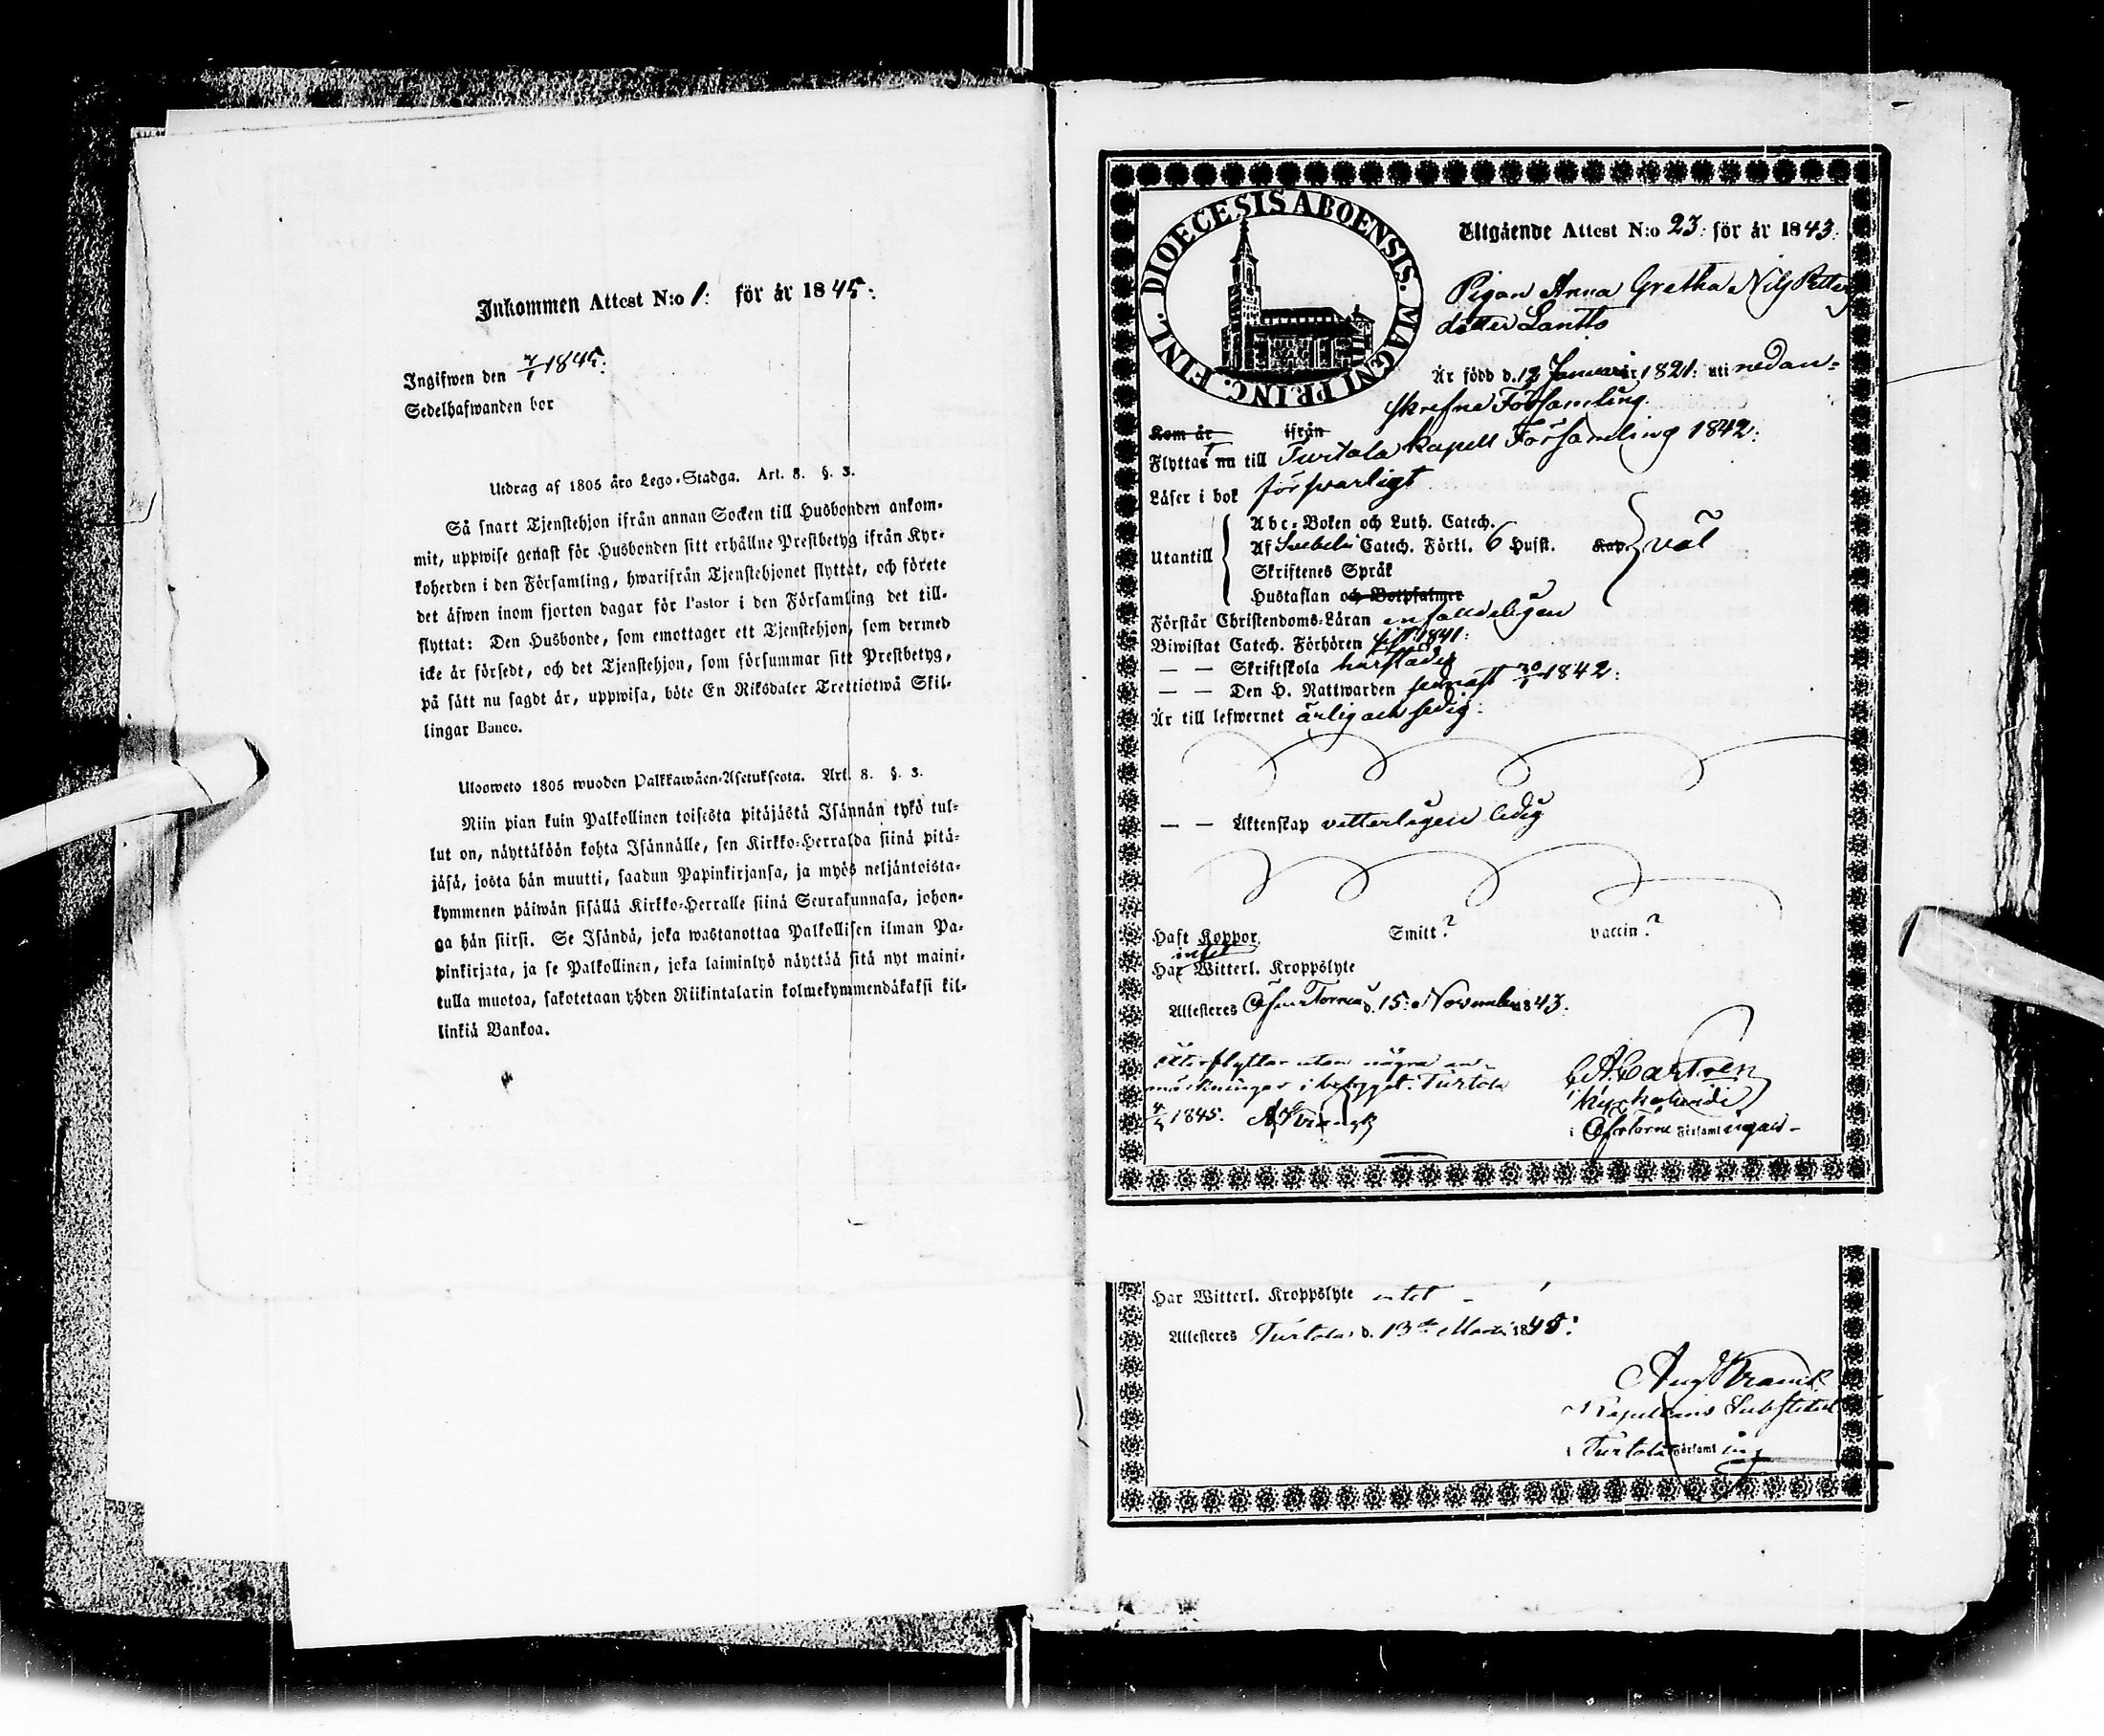 Inkommen Attest N:o 1: för år 1845:
Ingifwen den 7/1 1845:
Sedelhafwanden bor
Utdrag af 1805 års Lego-Stadga. Art. 8. §. 3.
Så snart Tjenstehjon ifrån annan Socken till Husbonden ankom-
mit, uppwise genast för Husbonden sitt erhållne Prestbetyg ifrån Kyr-
koherden i den Församling, hwarifrån Tjenstehjonet flyttat, och förete
det äfwen inom fjorton dagar för Pastor i den Församling det till-
flyttat: Den Husbonde, som emottager ett Tjenstehjon, som dermed
icke är försedt, och det Tjenstehjon, som försummar sitt Prestbetyg,
på sätt nu sagdt är, uppwisa, böte En Riksdaler Trettiotwå Skil-
lingar Banco.
Uloosweto 1805 wuoden Palkkawäen-Asetuksesta. Art. 8. §. 3.
Niin pian kuin Palkollinen toisesta pitäjästä Isännän tykö tul-
lut on, näyttäköön kohta Isännälle, sen Kirkko-Herralda siinä pitä-
jäsä, josta hän muutti, saadun Papinkirjansa, ja myös neljäntoista-
kymmenen päiwän sisällä Kirkko-Herralle siinä Seurakunnasa, johon-
ga hän siirsi. Se Isändä, joka wastanottaa Palkollisen ilman Pa-
pinkirjata, ja se Palkollinen, joka laiminlyö näyttää sitä nyt maini-
tulla muotoa, sakotetaan yhden Riikintalarin kolmekymmendäkaksi kil-
linkiä Bankoa.
DIOECESIS ABOENSIS. MAGNI PRINC. FINL.
Utgående Attest N:o 23: för år 1843:
Pigan Anna Gretha Nils Petters
dotter Lantto
Är född d. 12 Januari år 1821: uti nedan-
skrefne Församling.
Kom år ifrån
Flyttat nu till Turtola Kapell Församling 1842:
Läser i bok försvarligt
Utantill
Abc-Boken och Luth. Catech.
Af Svebelii Catech. Förkl. 6 Hufst. Kap. väl
Skriftenes Språk
Hustaflan och Botpsalmer
Förstår Christendoms-Läran enfalldeligen
Biwistat Catech. Förhören sist 1841:
— — Skriftskola härstädes
— — Den H. Nattwarden senast 30/1 1842:
Är till lefwernet ärlig och sedig:
— — Äktenskap vetterligen ledig
Haft Koppor. Smitt? vaccin?
intet
Har Witterl. Kroppslyte
Attesteres Öfver Torneå d. 15: November 1843.
Återflyttar utan några an-
märkningar i betyget. Turtola
4/1 1845.
Kyrkoherde
i Öfvertorne Församlingar-
Har Witterl. Kroppslyte intet -
Attesteres Turtola d. 13de Mars 1845:
Kapellans Substitut
i Turtola Församling